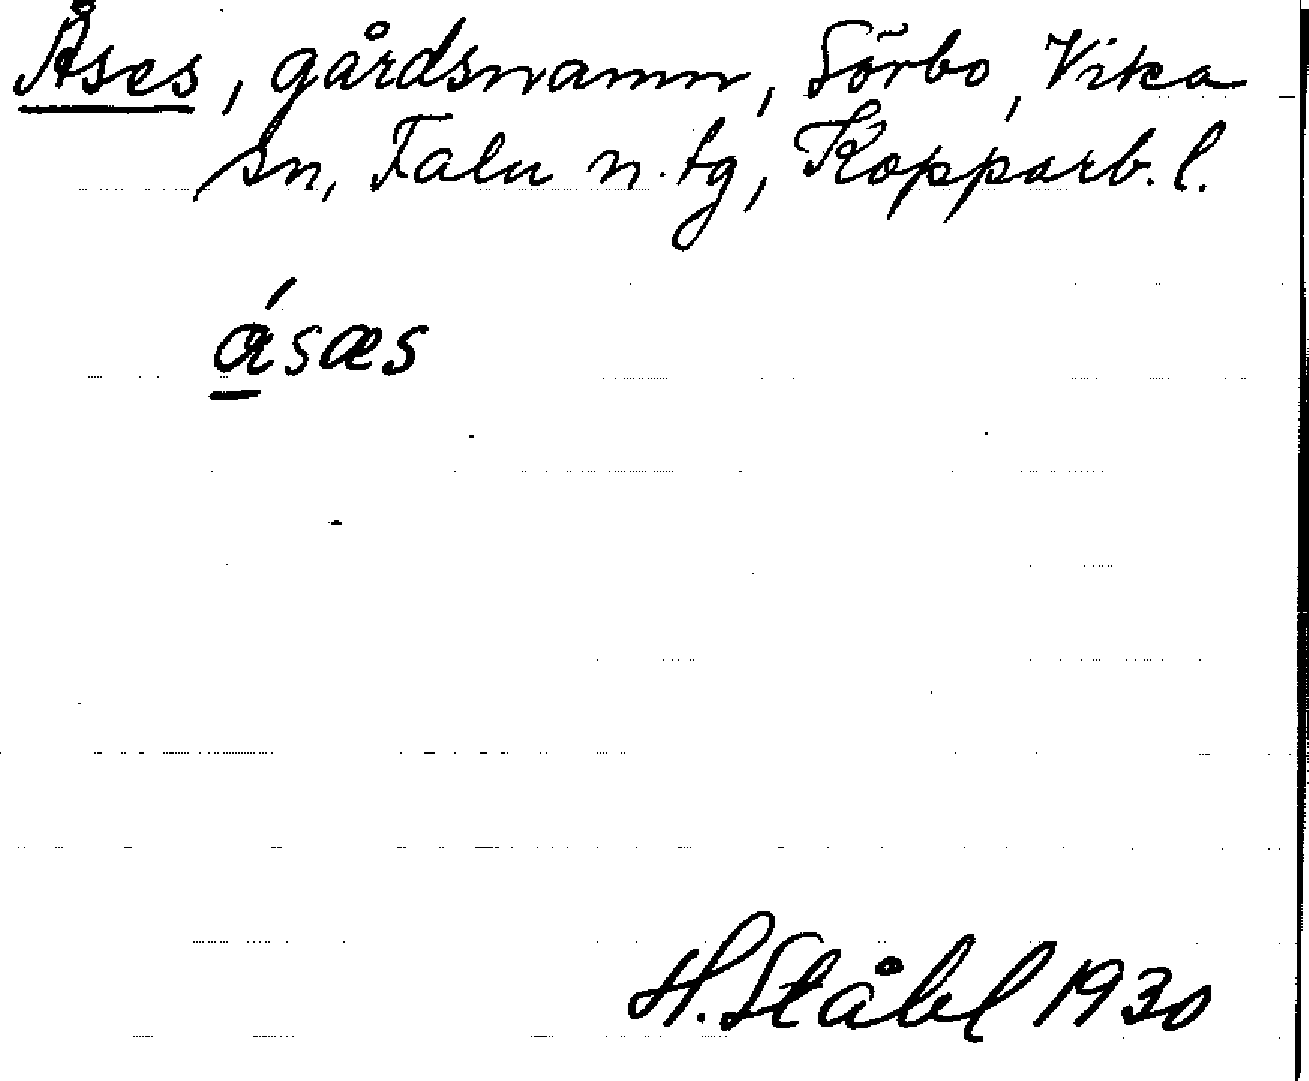 Åses, gårdsnamn, Sörbo, Vika
sn, Falu n. tg, Kopparb. l.
ásæs
H. Ståhl 1930